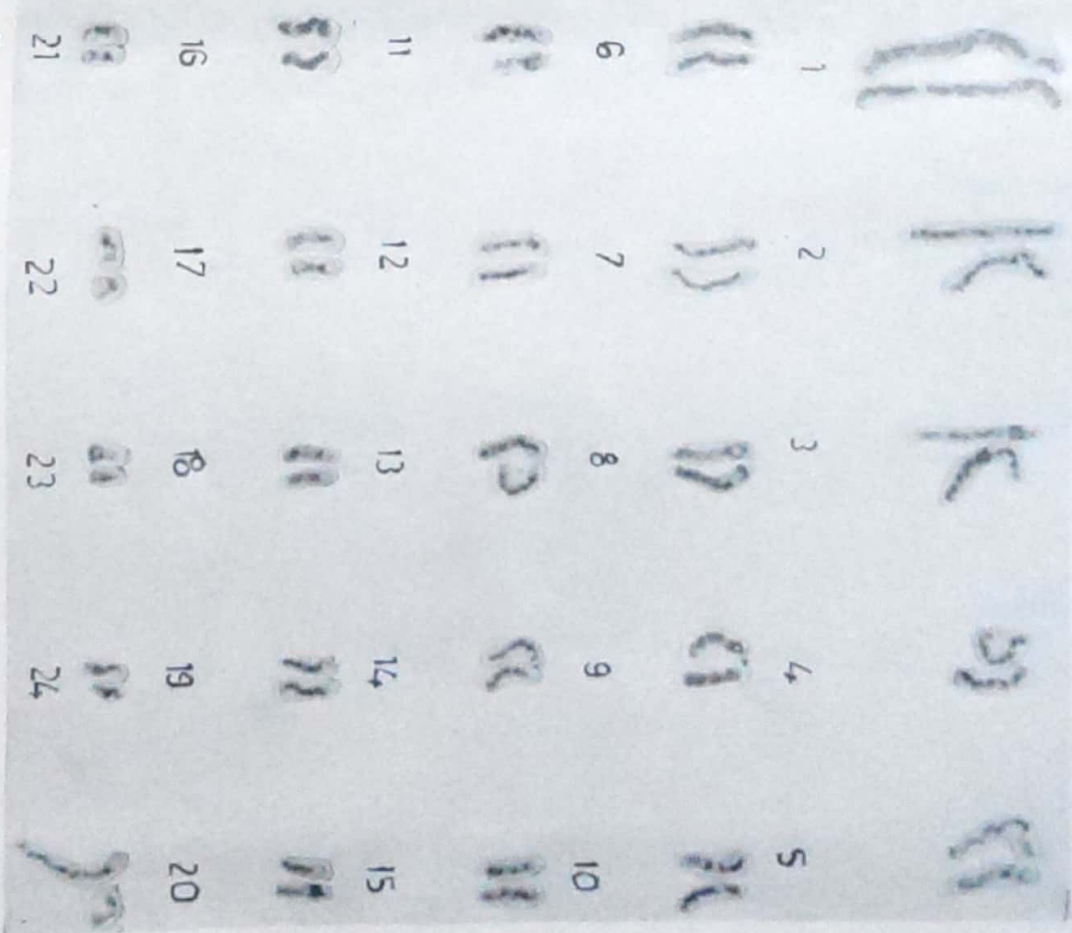 1 2 3 4 5
6 7 8 9 10
11 12 13 14 15
16 17 18 19 20
21 22 23 24